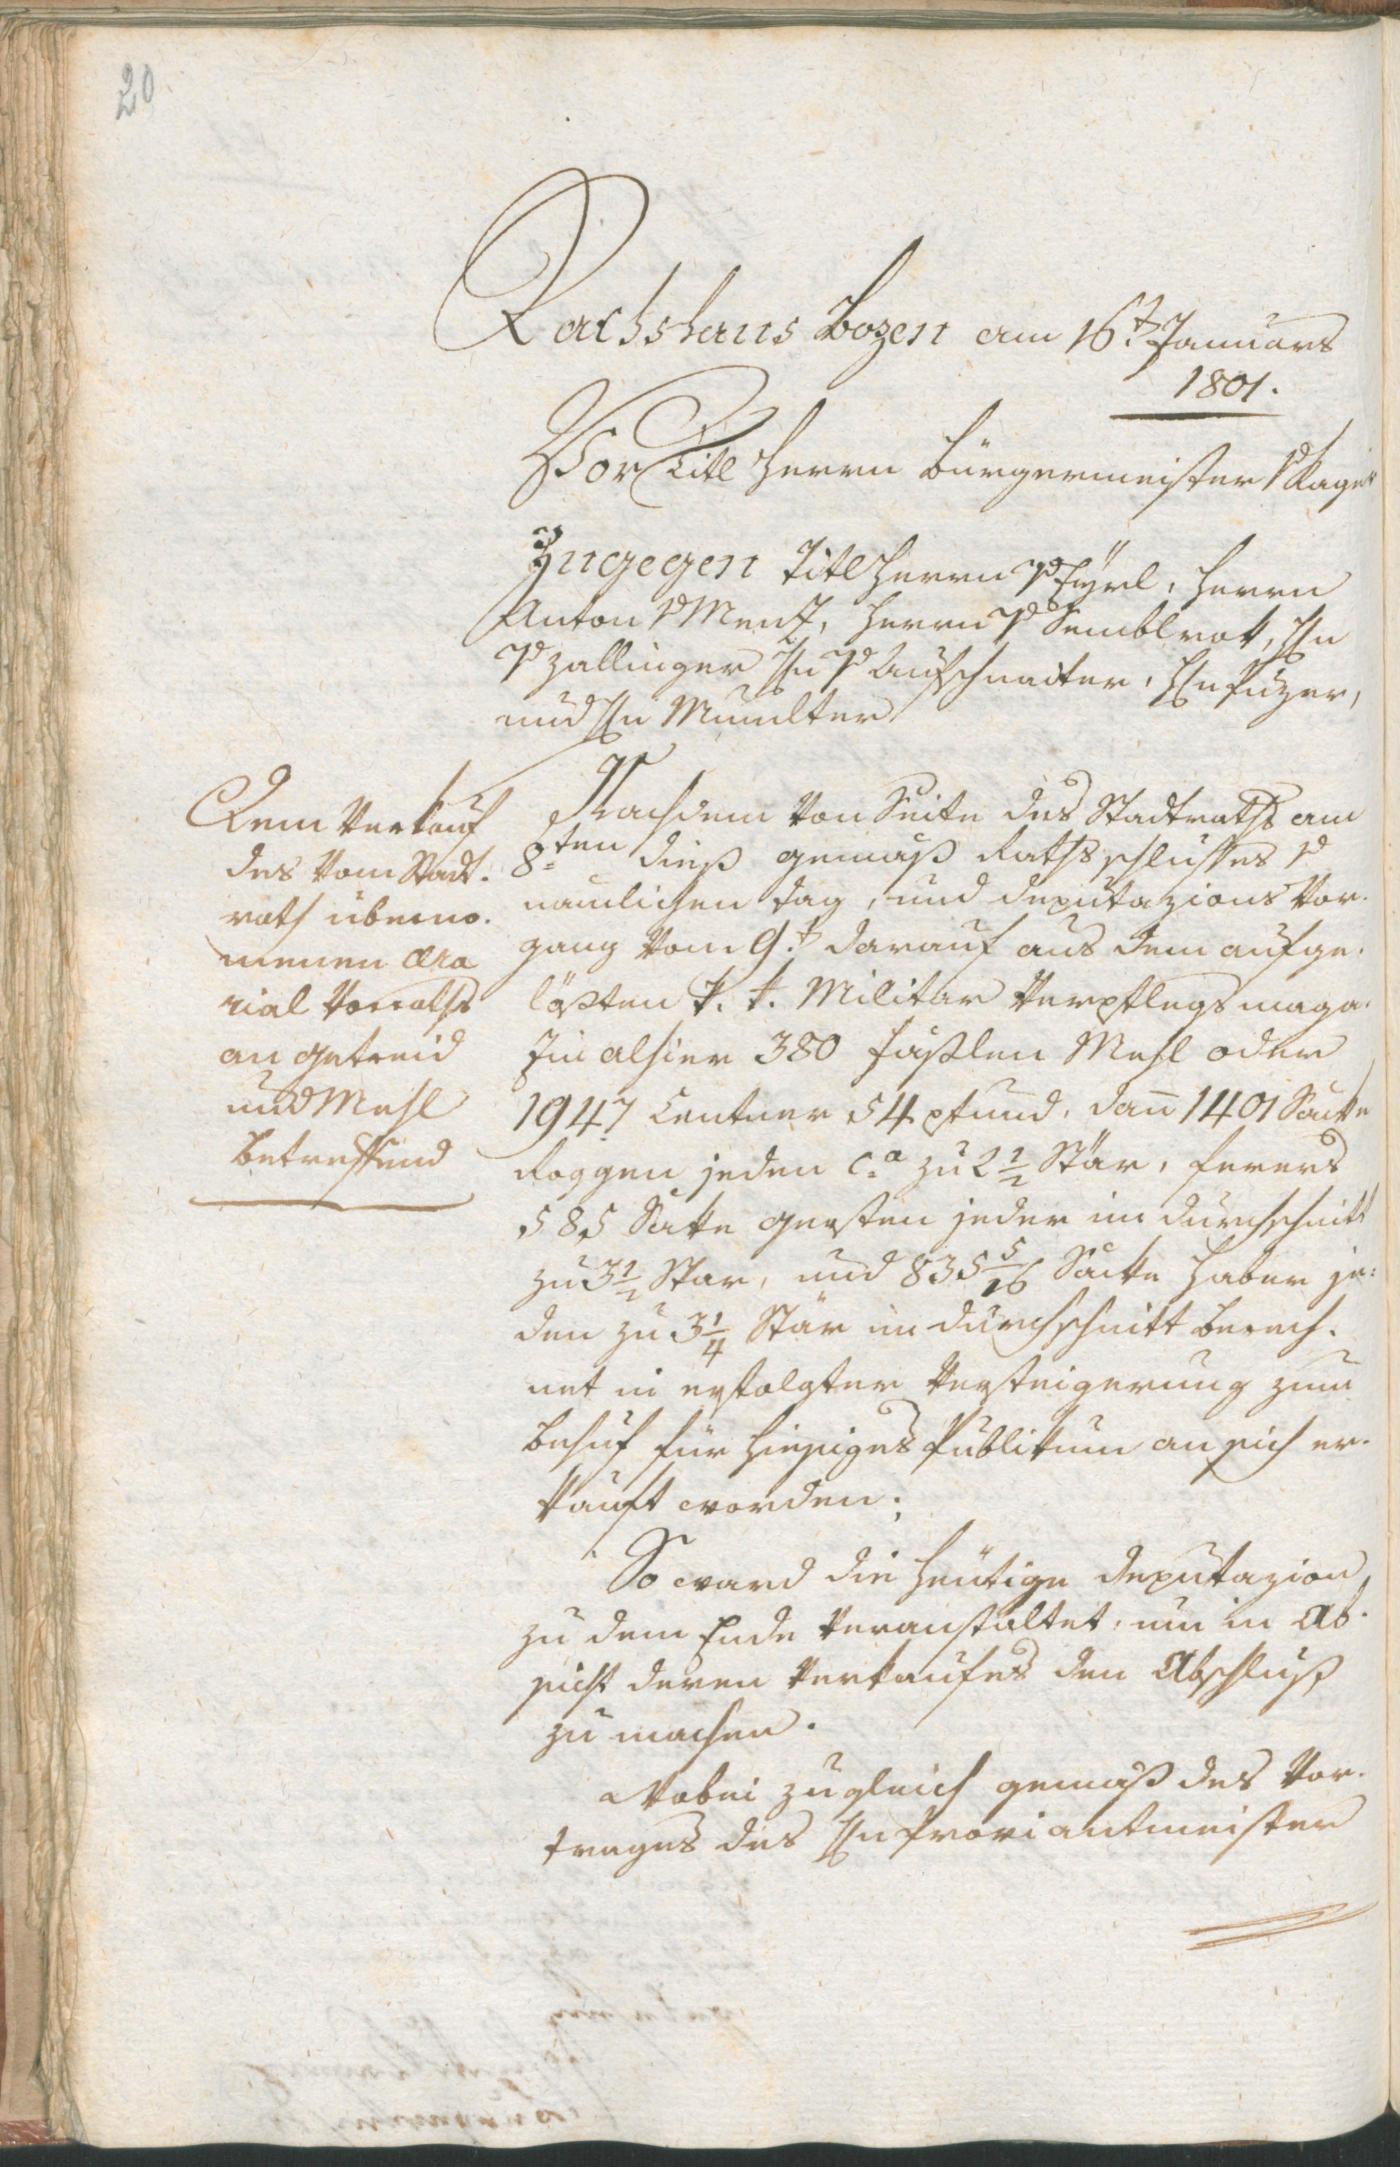 20
Rathshaus Bozen am 16.t Januars
1801.
Vor Titl Herrn Bürgermeister v Kager
Zugegen Titl Herrn v Eÿrl, Herrn
Anton v Menz, Herrn v Semblrok, Hn
v Zallinger Hn v Aufschnaiter, Hn Puzer,
und Hn Mumelter
Dem Verkauf
des vom Stadt.
rath überno.
menen Æra
rial Vorraths
an Getreid
und Mehl
betreffend
Nachdem von Seite des Stadtraths am
8ten dieß gemäß Rathsschlusses v
nämlichen Tag, und Deputazions Vor.
gang vom 9.t darauf aus dem aufge.
lößten k. k. Militar Verpflegsmaga.
zin alhier 380 Fäßlen Mehl oder
1947 Centner 54 Pfund, dan̄ 1401 Säcke
Roggen jeden C.a zu 2 1/2 Stär, ferers
585 Säcke Gersten jeder im Durchschnitt
zu 3 1/2 Star, und 835 5/16 Säcke Haber je:
den zu 3 1/4 Stär im Durchschnitt berech.
net in erfolgter Versteigerung zum
Behuf für hiesiges Publikum an sich er.
kauft worden;
So ward die heutige Deputazion
zu dem Ende veranstaltet, um in Ab.
sicht deren Verkaufes den Abschluß
zu machen.
Wobei zugleich gemäß des Vor.
trages des Hn Proviantmeister